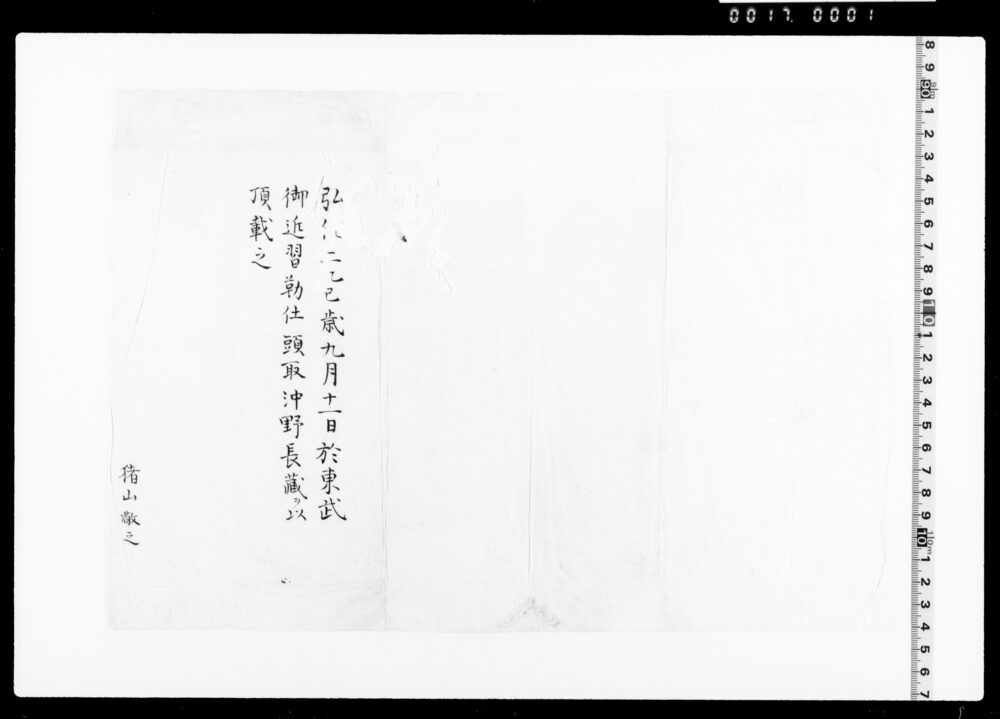 0017. 0001
弘化二乙巳歳九月十一日於東武
御近習勤仕頭取沖野長藏ヲ以
頂載之
猪山敬之
8 9 90 1 2 3 4 5 6 7 8 9 10 1 2 3 4 5 6 7 8 9 10 1 2 3 4 5 6 7